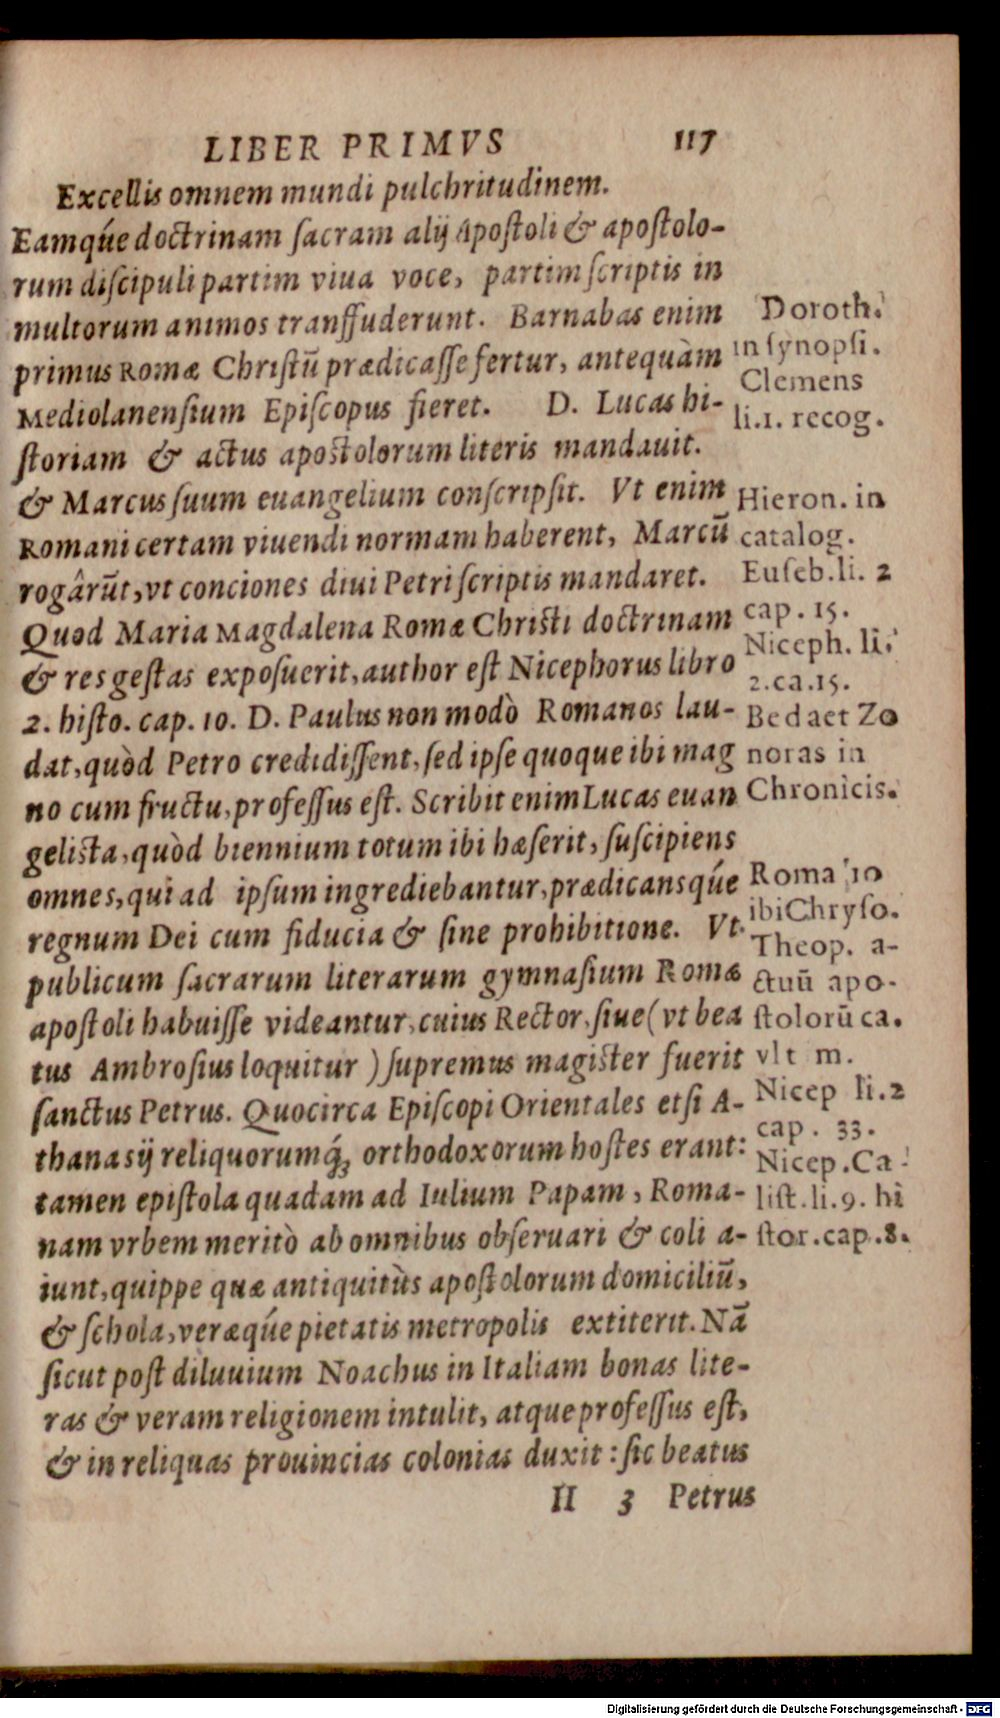 LIBER PRIMVS 117
Excellis omnem mundi pulchritudinem.
Eamq́ue doctrinam ſacram alij Apoſtoli & apoſtolo-
rum diſcipuli partim viua voce, partim ſcriptis in
multorum animos tranſfuderunt. Barnabas enim
primus Romæ Chriſtū prædicaſſe fertur, antequàm
Mediolanenſium Epiſcopus fieret. D. Lucas hi-
ſtoriam & actus apoſtolorum literis mandauit.
& Marcus ſuum euangelium conſcripſit. Vt enim
Romani certam viuendi normam haberent, Marcū
rogârūt, vt conciones diui Petri ſcriptis mandaret.
Quod Maria Magdalena Romæ Chriſti doctrinam
& res geſtas expoſuerit, author eſt Nicephorus libro
2. hiſto. cap. 10. D. Paulus non modò Romanos lau-
dat, quòd Petro credidiſſent, ſed ipſe quoque ibi mag
no cum fructu, profeſſus eſt. Scribit enim Lucas euan
geliſta, quòd biennium totum ibi hæſerit, ſuſcipiens
omnes, qui ad ipſum ingrediebantur, prædicansq́ue
regnum Dei cum fiducia & ſine prohibitione. Vt
publicum ſacrarum literarum gymnaſium Romæ
apoſtoli habuiſſe videantur, cuius Rector, ſiue (vt bea
tus Ambroſius loquitur) ſupremus magiſter fuerit
ſanctus Petrus. Quocirca Epiſcopi Orientales etſi A-
thanasij reliquorumq́; orthodoxorum hoſtes erant:
tamen epiſtola quadam ad Iulium Papam, Roma-
nam vrbem meritò ab omnibus obſeruari & coli a-
iunt, quippe quæ antiquitùs apoſtolorum domiciliū,
& ſchola, veræq́ue pietatis metropolis extiterit. Nā
ſicut poſt diluuium Noachus in Italiam bonas lite-
ras & veram religionem intulit, atque profeſſus eſt,
& in reliquas prouincias colonias duxit: ſic beatus
II 3 Petrus
Doroth.
in ſynopſi.
Clemens
li.1. recog.
Hieron. in
catalog.
Euſeb.li. 2
cap. 15.
Niceph. li.
2.ca.15.
Beda et Zo
noras in
Chronicis.
Roma 10
ibi Chryſo.
Theop. a-
ctuū apo-
ſtolorū ca.
vlt m.
Nicep li.2
cap. 33.
Nicep.Ca-
liſt.li.9. hi
ſtor.cap.8.
Digitalisierung gefördert durch die Deutsche Forschungsgemeinschaft - DFG